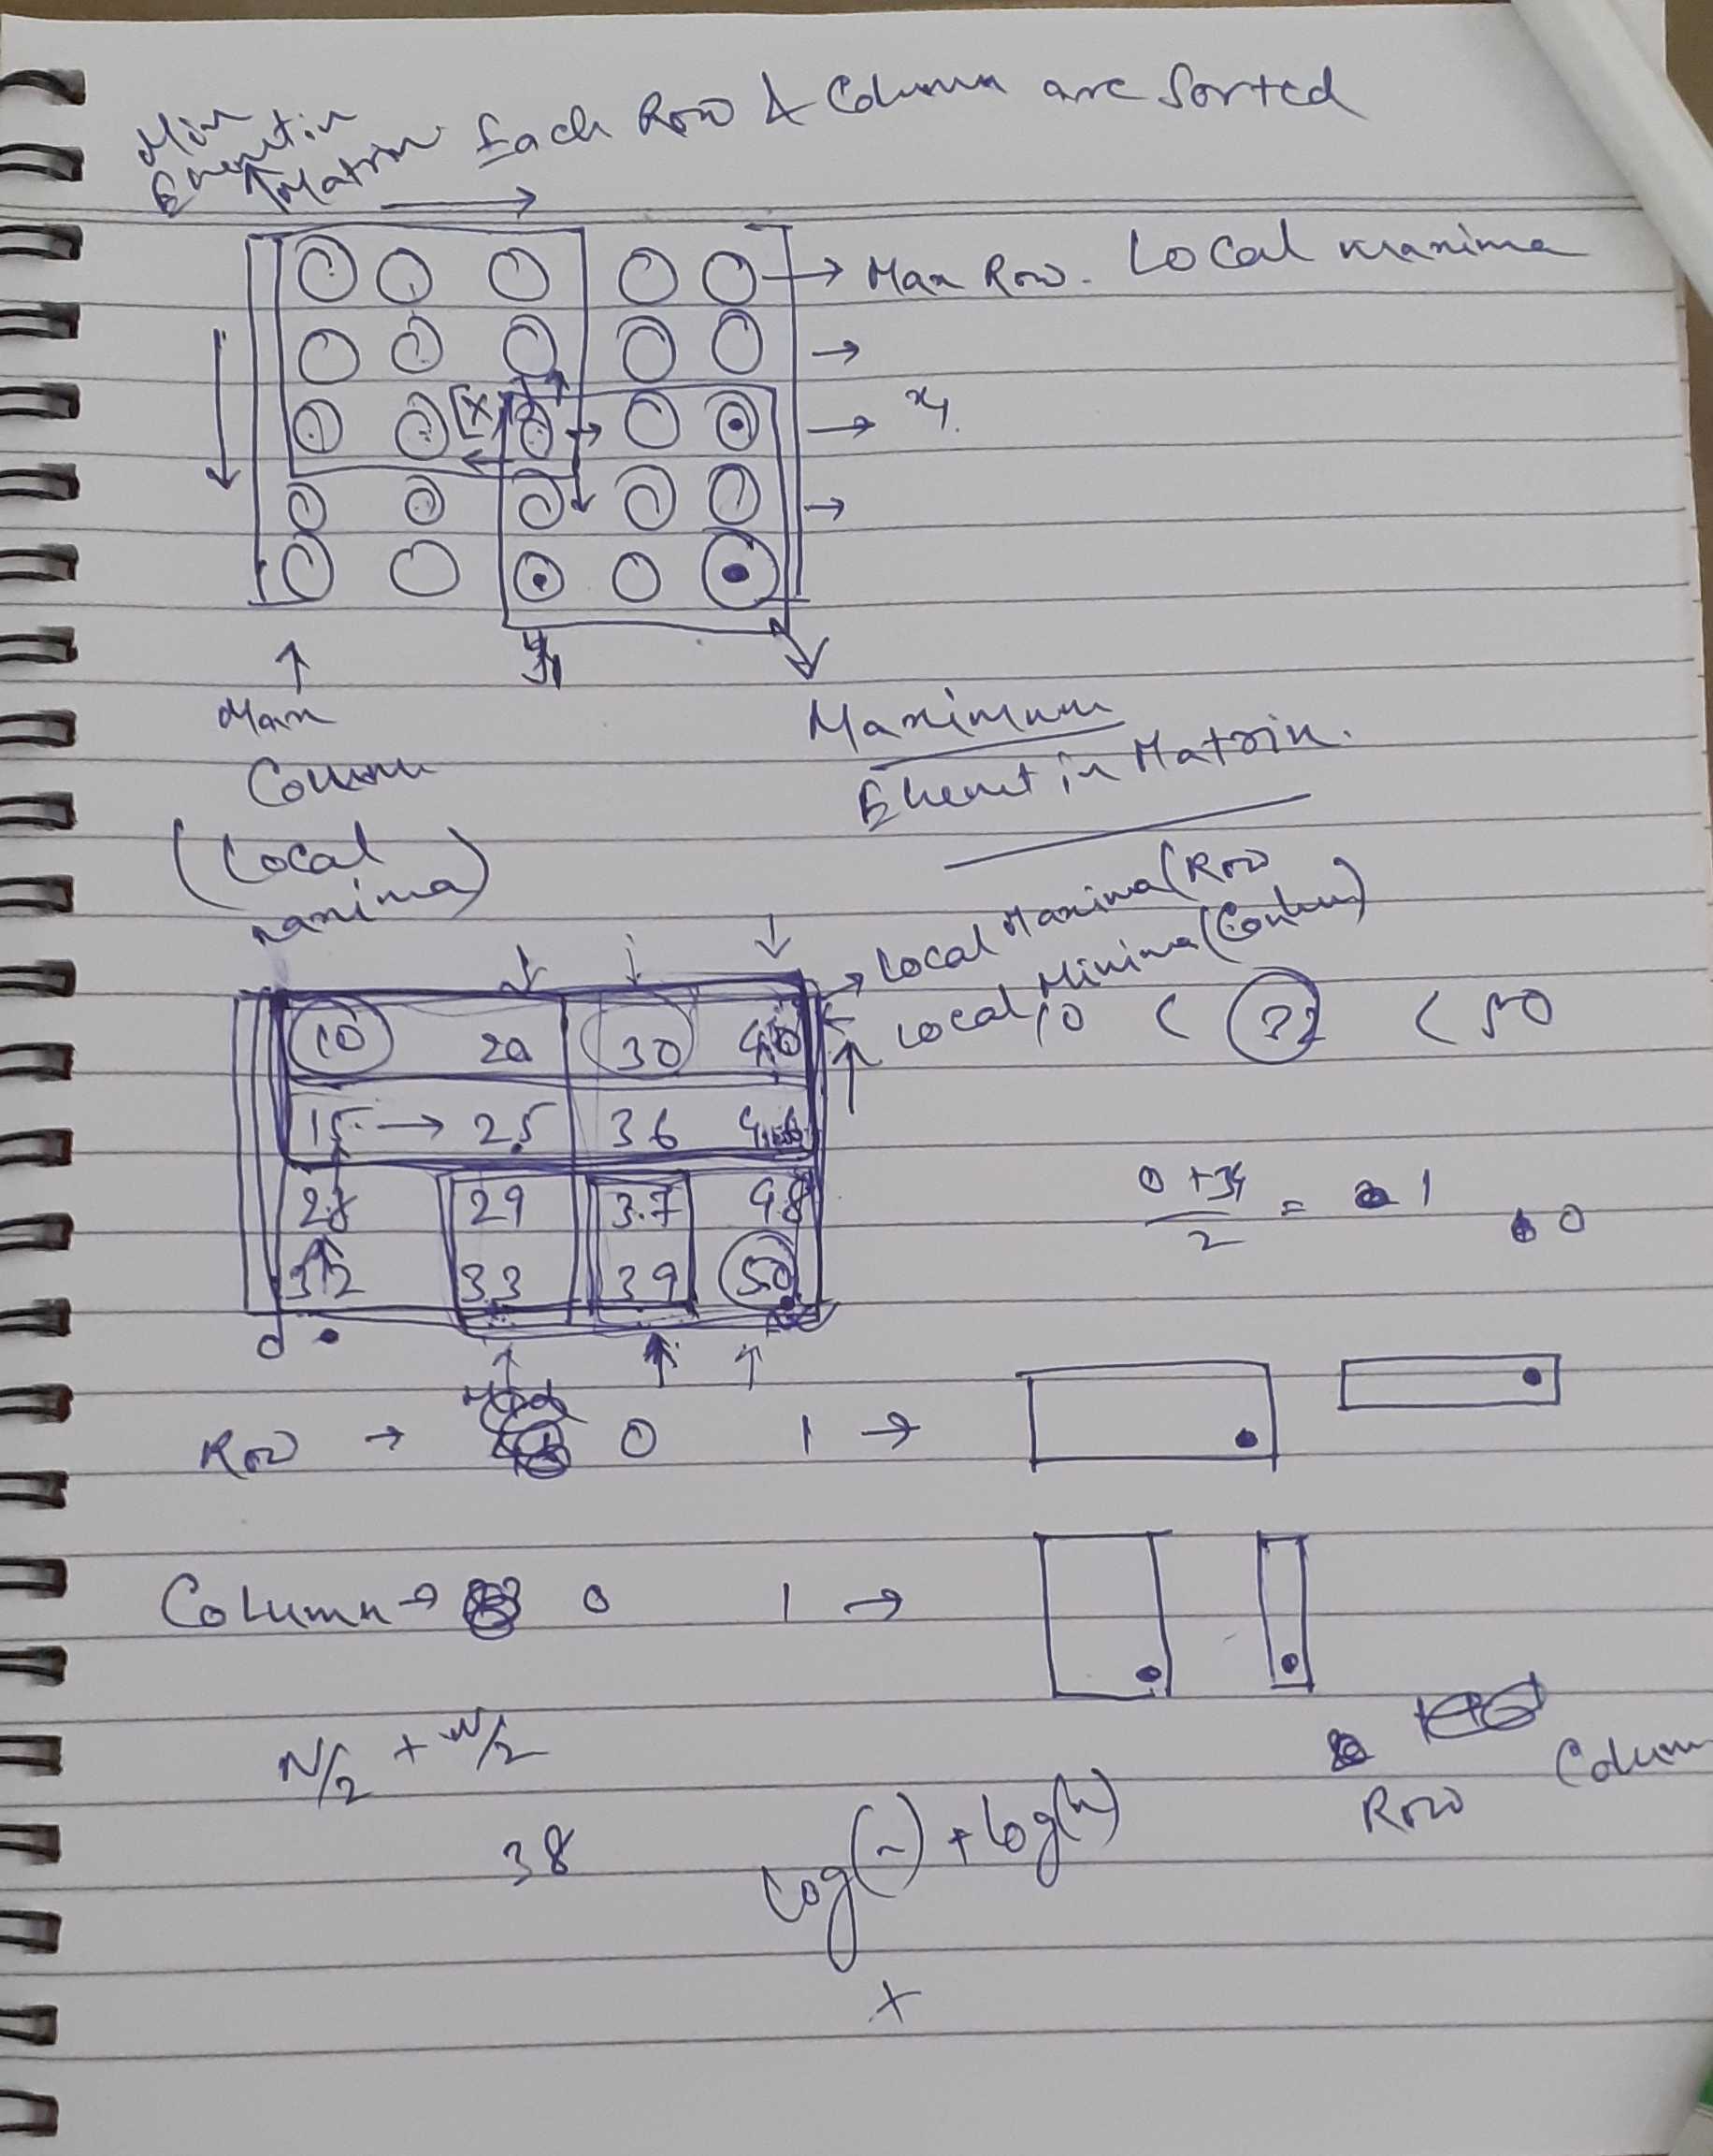 Min
Element in
Matrix Each Row & Column are Sorted
Max Row. Local maxima
[x]
x1
y1
Max
Column
(Local
maxima)
Maximum
Element in Matrix.
Local Maxima (Row
Local Minima (Column)
10 20 30 40
10 < 32 < 50
15 → 25 36 46
28 29 37 48
32 33 39 50
0 + 3 / 2 = 1 0
Mid
Row → 0 1 →
Column → 0 1 →
N/2 + N/2
Row Column
38
log(n) + log(n)
x